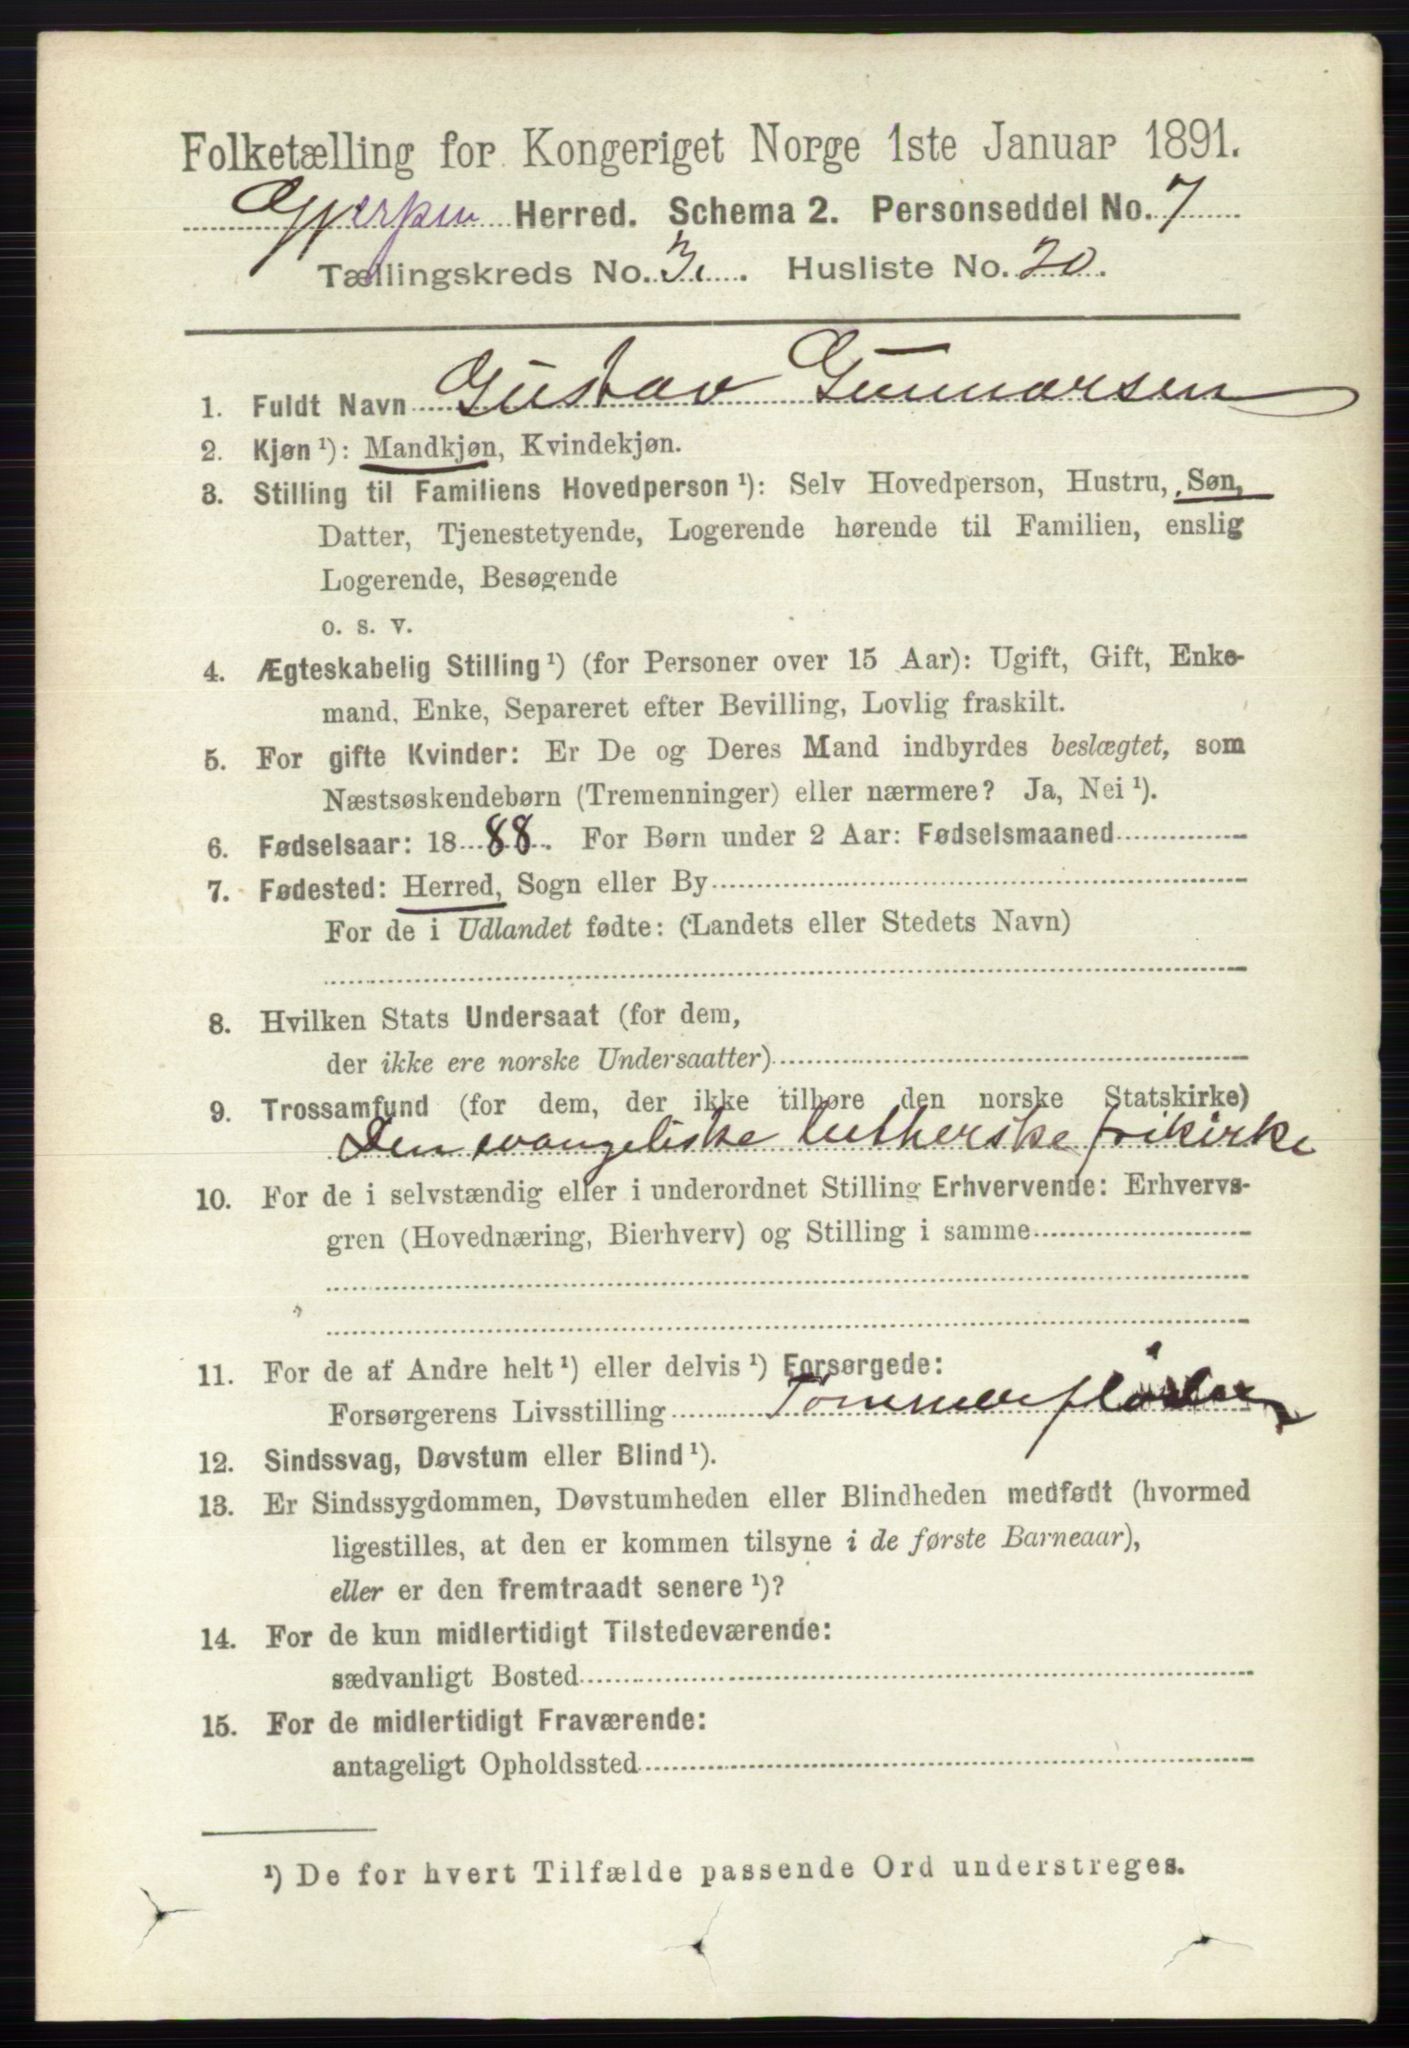 Folketælling for Kongeriget Norge 1ste Januar 1891.
Gjerpen Herred. Schema 2. Personseddel No. 7
Tællingskreds No. 3. Husliste No. 20.
1. Fuldt Navn Gustav Gunnarsen
2. Kjøn ¹): Mandkjøn, Kvindekjøn.
3. Stilling til Familiens Hovedperson ¹): Selv Hovedperson, Hustru, Søn,
Datter, Tjenestetyende, Logerende hørende til Familien, enslig
Logerende, Besøgende
o. s. v.
4. Ægteskabelig Stilling ¹) (for Personer over 15 Aar): Ugift, Gift, Enke-
mand, Enke, Separeret efter Bevilling, Lovlig fraskilt.
5. For gifte Kvinder: Er De og Deres Mand indbyrdes beslægtet, som
Næstsøskendebørn (Tremenninger) eller nærmere? Ja, Nei ¹).
6. Fødselsaar: 1888. For Børn under 2 Aar: Fødselsmaaned
7. Fødested: Herred, Sogn eller By
For de i Udlandet fødte: (Landets eller Stedets Navn)
8. Hvilken Stats Undersaat (for dem,
der ikke ere norske Undersaatter)
9. Trossamfund (for dem, der ikke tilhøre den norske Statskirke)
Den evangeliske lutherske frikirke
10. For de i selvstændig eller i underordnet Stilling Erhvervende: Erhvervs-
gren (Hovednæring, Bierhverv) og Stilling i samme
11. For de af Andre helt ¹) eller delvis ¹) Forsørgede:
Forsørgerens Livsstilling Tommerfløder
12. Sindssvag, Døvstum eller Blind ¹).
13. Er Sindssygdommen, Døvstumheden eller Blindheden medfødt (hvormed
ligestilles, at den er kommen tilsyne i de første Barneaar),
eller er den fremtraadt senere ¹)?
14. For de kun midlertidigt Tilstedeværende:
sædvanligt Bosted
15. For de midlertidigt Fraværende:
antageligt Opholdssted
¹) De for hvert Tilfælde passende Ord understreges.